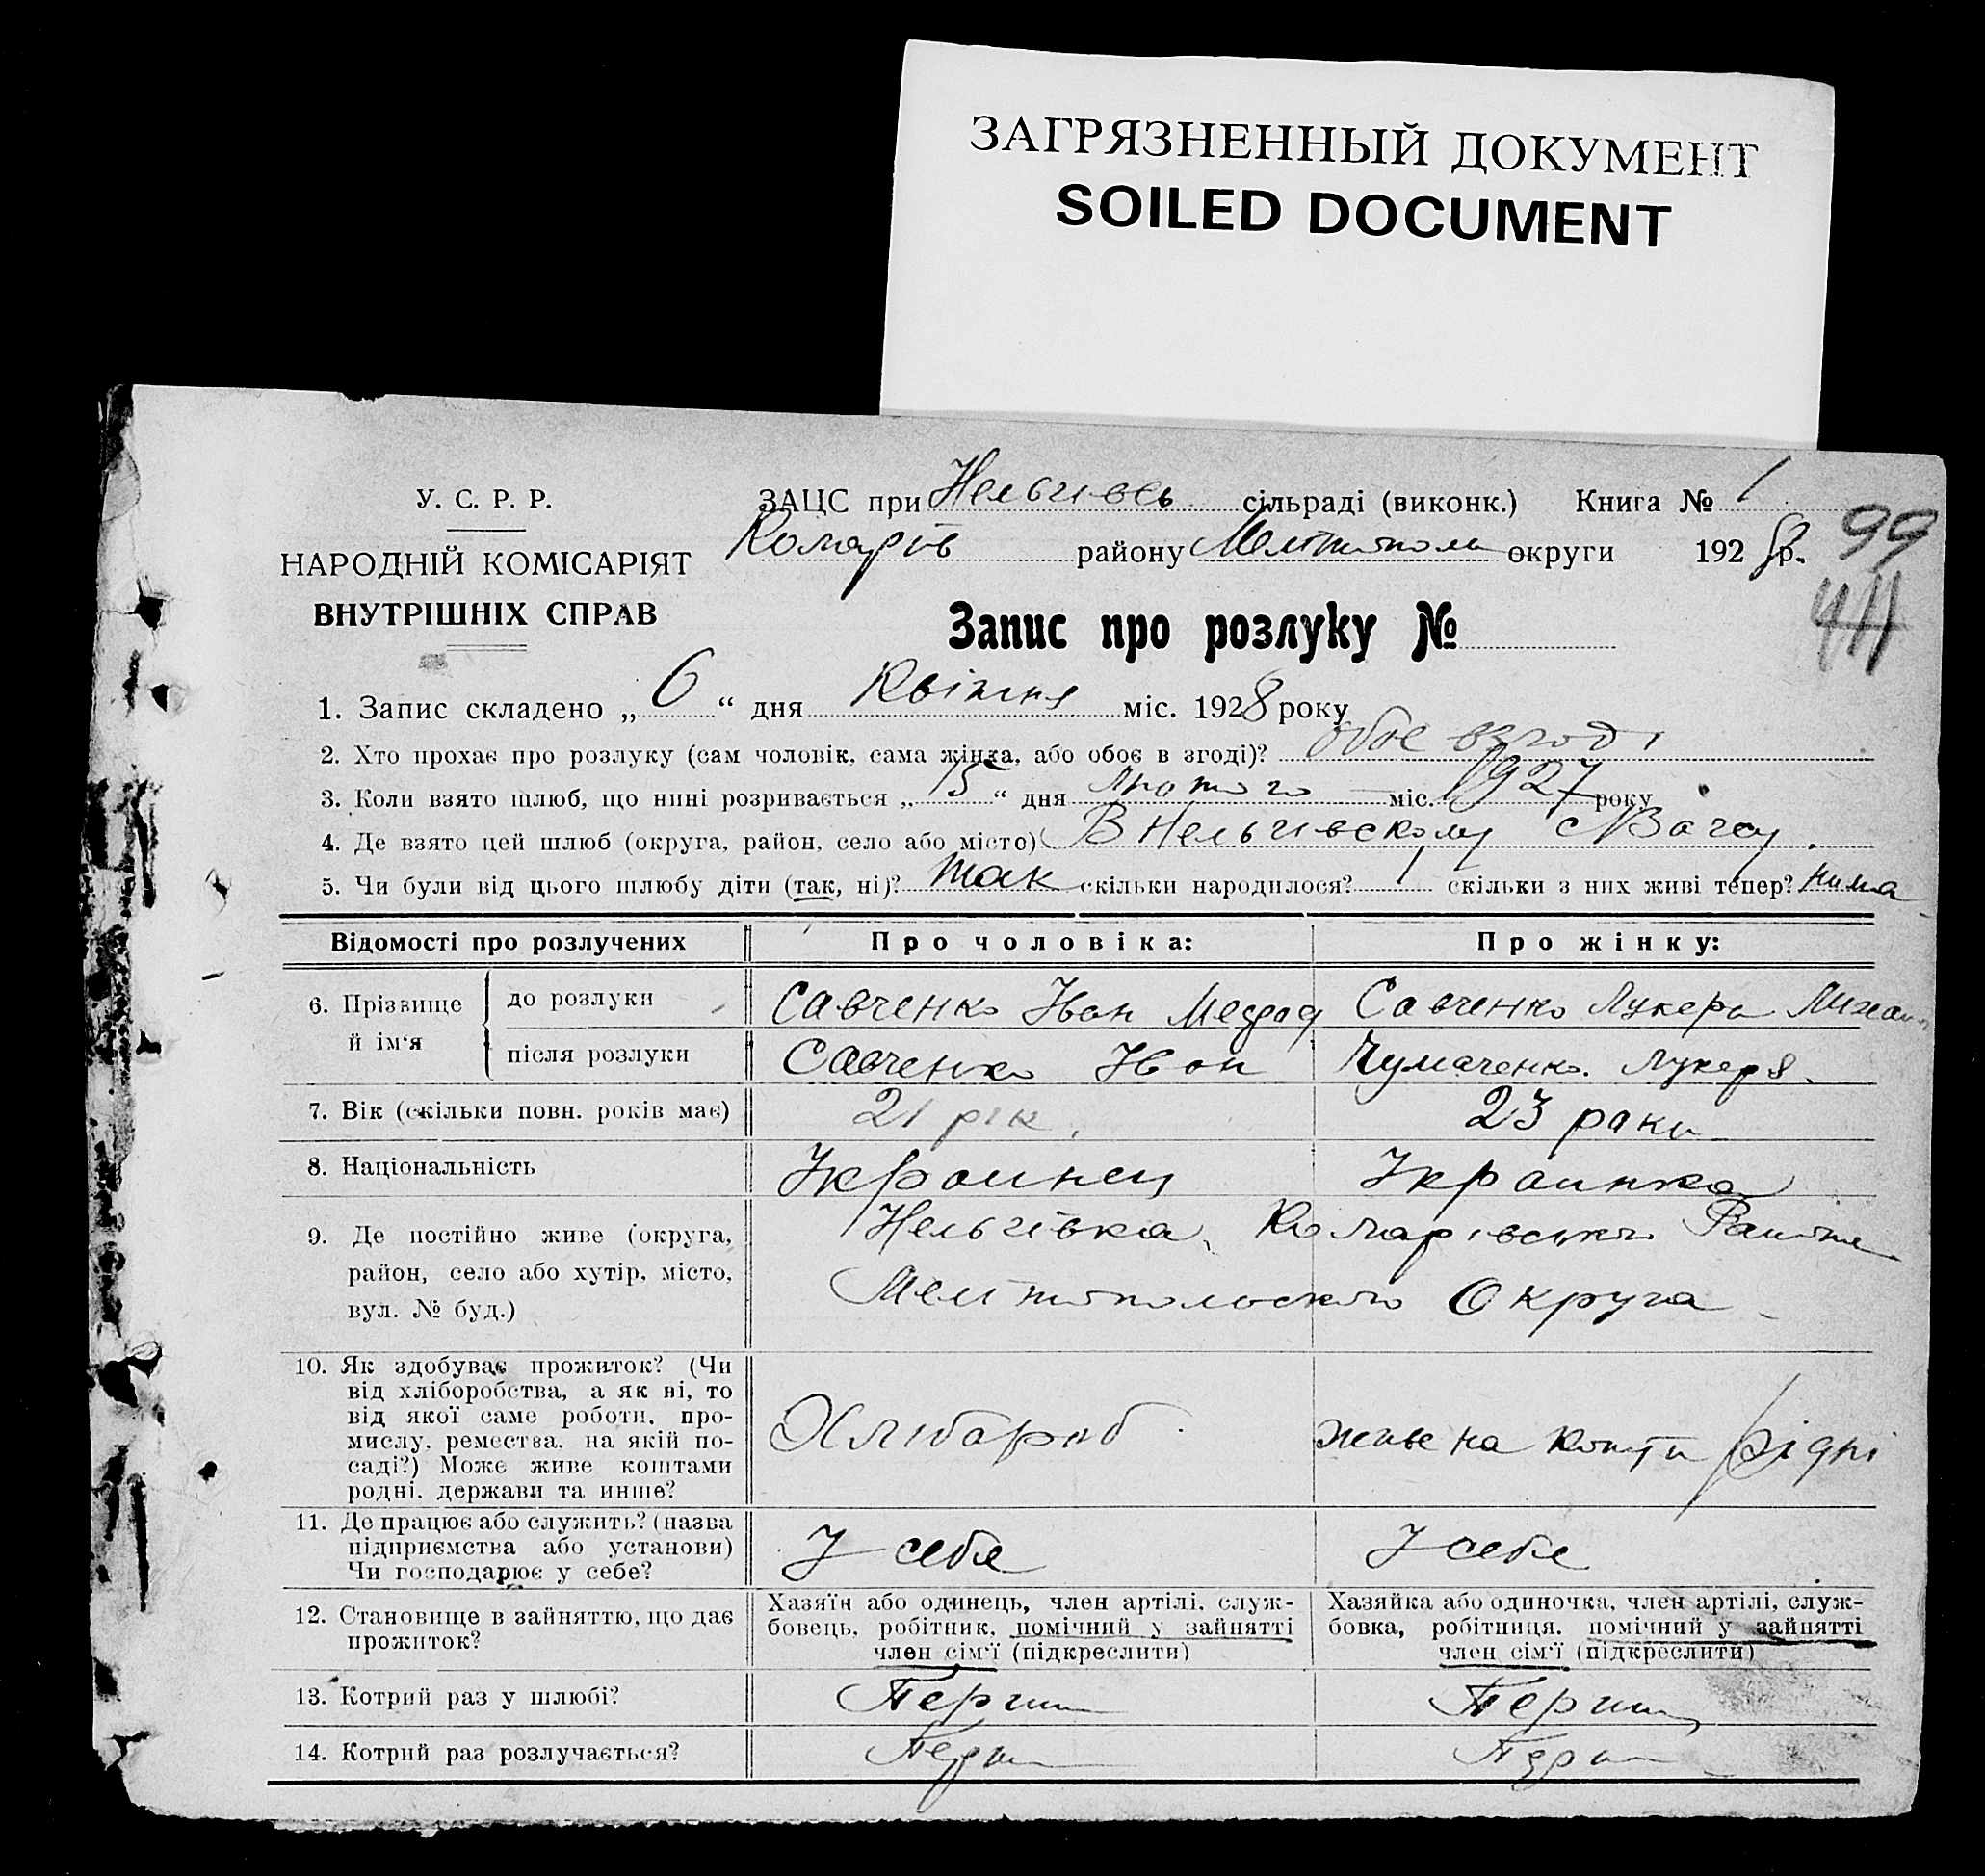 ЗАГРЯЗНЕННЫЙ ДОКУМЕНТ
SOILED DOCUMENT
У. С. Р. Р.
НАРОДНІЙ КОМІСАРІЯТ
ВНУТРІШНІХ СПРАВ
ЗАЦС при Нельгивсь сільраді (виконк.) Книга № 1
Комарів району округи 1928 р.
99
44
Запис про розлуку №
1. Запис складено „ 6 “ дня Квітня міс. 1928 року
2. Хто прохає про розлуку (сам чоловік, сама жінка, або обоє в згоді)? обоє взгоді
3. Коли взято шлюб, що нині розривається „ 15 “ дня лютого міс. 1927 року
4. Де взято цей шлюб (округа, район, село або місто) В Нельгивскому
5. Чи були від цього шлюбу діти (так, ні)? так скільки народилося? 1 скільки з них живі тепер? нима
Відомості про розлучених Про чоловіка: Про жінку:
6. Прізвище й ім'я
до розлуки Савченко Іван Савченко Лукеря
після розлуки Савченко Іван Чумаченко Лукеря
7. Вік (скільки повн. років має) 21 рік. 23 роки
8. Національність Украинец Украинка
9. Де постійно живе (округа, Нельгівка, Комарівського
район, село або хутір, місто,
вул. № буд.) Округа
10. Як здобуває прожиток? (Чи
від хліборобства, а як ні, то
від якої саме роботи, про-
мислу, ремества, на якій по-
саді?) Може живе коштами
родні, держави та инше?
Хлібороб живе на кошти рідні
11. Де працює або служить? (назва
підприємства або установи)
Чи господарює у себе?
У себе У себе
12. Становище в зайняттю, що дає
прожиток?
Хазяїн або одинець, член артілі, служ-
бовець, робітник, помічний у зайнятті
член сім'ї (підкреслити)
Хазяйка або одиночка, член артілі, служ-
бовка, робітниця, помічний у зайнятті
член сім'ї (підкреслити)
13. Котрий раз у шлюбі? Перший Перший
14. Котрий раз розлучається?